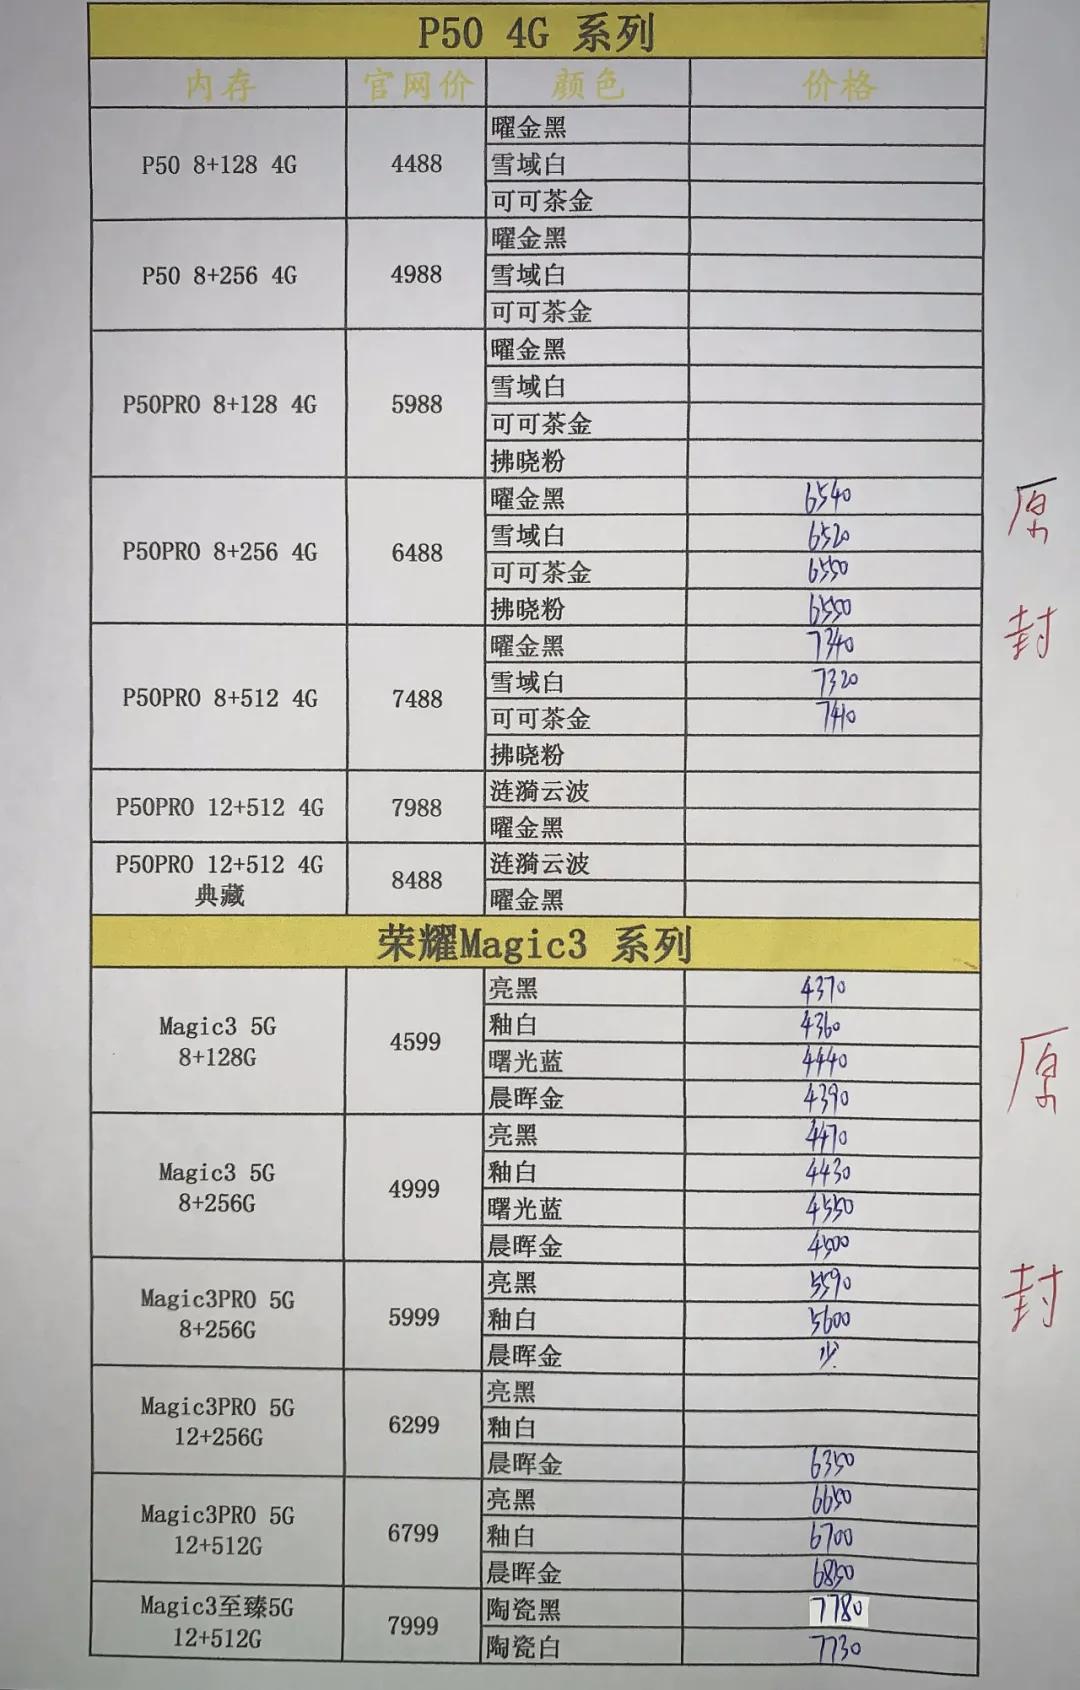 P50 4G 系列
内存 官网价 颜色 价格
P50 8+128 4G 4488 曜金黑
雪域白
可可茶金
P50 8+256 4G 4988 曜金黑
雪域白
可可茶金
P50PRO 8+128 4G 5988 曜金黑
雪域白
可可茶金
拂晓粉
P50PRO 8+256 4G 6488 曜金黑 6540
雪域白 6520
可可茶金 6550
拂晓粉 6550
原
封
P50PRO 8+512 4G 7488 曜金黑 7340
雪域白 7320
可可茶金 7410
拂晓粉
P50PRO 12+512 4G 7988 涟漪云波
曜金黑
P50PRO 12+512 4G
典藏 8488 涟漪云波
曜金黑
荣耀Magic3 系列
Magic3 5G
8+128G 4599 亮黑 4370
釉白 4360
曙光蓝 4440
晨晖金 4390
原
封
Magic3 5G
8+256G 4999 亮黑 4470
釉白 4430
曙光蓝 4550
晨晖金 4500
Magic3PRO 5G
8+256G 5999 亮黑 5590
釉白 5600
晨晖金 少
Magic3PRO 5G
12+256G 6299 亮黑
釉白
晨晖金 6350
Magic3PRO 5G
12+512G 6799 亮黑 6650
釉白 6700
晨晖金 6850
Magic3至臻5G
12+512G 7999 陶瓷黑 7780
陶瓷白 7730